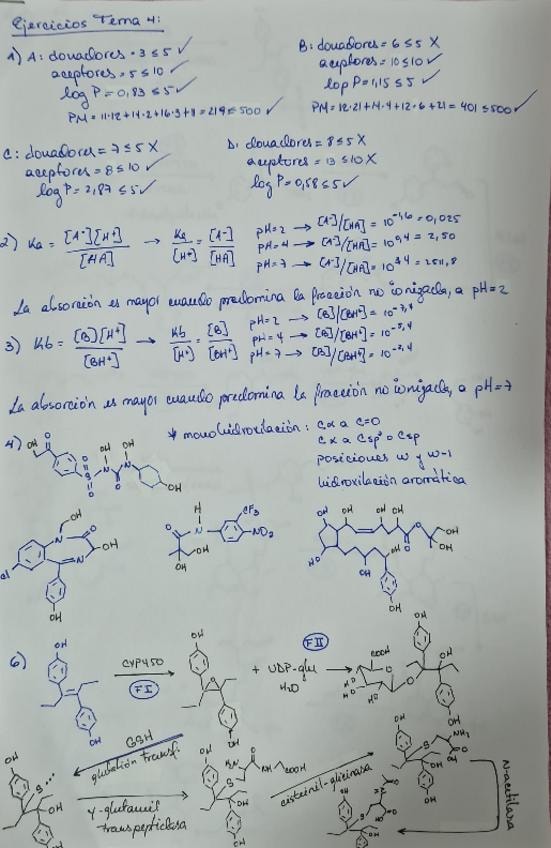 Ejercicios Tema 4:
1) A: donadores = 3 ≤ 5 ✓
aceptores = 5 ≤ 10 ✓
log P = 0,83 ≤ 5 ✓
PM = 11·12 + 14·2 + 16·3 + 11 = 219 ≤ 500 ✓
B: donadores = 6 ≤ 5 X
aceptores = 10 ≤ 10 ✓
log P = 1,15 ≤ 5 ✓
PM = 12·21 + 14·4 + 12·6 + 21 = 401 ≤ 500 ✓
C: donadores = 7 ≤ 5 X
aceptores = 8 ≤ 10 ✓
log P = 2,87 ≤ 5 ✓
D: donadores = 8 ≤ 5 X
aceptores = 13 ≤ 10 X
log P = 0,58 ≤ 5 ✓
2) Ka = [A⁻][H⁺] / [HA] → Ka / [H⁺] = [A⁻] / [HA]
pH = 2 → [A⁻]/[HA] = 10^-1,6 = 0,025
pH = 4 → [A⁻]/[HA] = 10^0,4 = 2,50
pH = 7 → [A⁻]/[HA] = 10^3,4 = 2511,8
La absorción es mayor cuando predomina la fracción no ionizada, a pH = 2
3) Kb = [B][H⁺] / [BH⁺] → Kb / [H⁺] = [B] / [BH⁺]
pH = 2 → [B]/[BH⁺] = 10^-7,4
pH = 4 → [B]/[BH⁺] = 10^-5,4
pH = 7 → [B]/[BH⁺] = 10^-2,4
La absorción es mayor cuando predomina la fracción no ionizada, a pH = 7
4)
* monohidroxilación: Cα a C=O
Cα a Csp² o Csp
posiciones ω y ω-1
hidroxilación aromática
OH
O
S
O
O
OH
N
O
OH
N
OH
OH
N
O
OH
N
Cl
OH
H
N
O
OH
OH
CF₃
NO₂
OH
OH
OH
O
O
OH
OH
HO
HO
OH
OH
OH
6)
OH
OH
CYP450
FI
OH
O
OH
+ UDP-glu
H₂O
FII
COOH
O
HO
HO
HO
O
OH
OH
GSH
glutatión transf.
OH
S
OH
OH
γ-glutamil
transpeptidasa
OH
H₂N
O
NH
COOH
S
OH
OH
cisteinil-glicinasa
OH
S
NH₂
O
OH
OH
OH
N-acetilasa
OH
S
O
OH